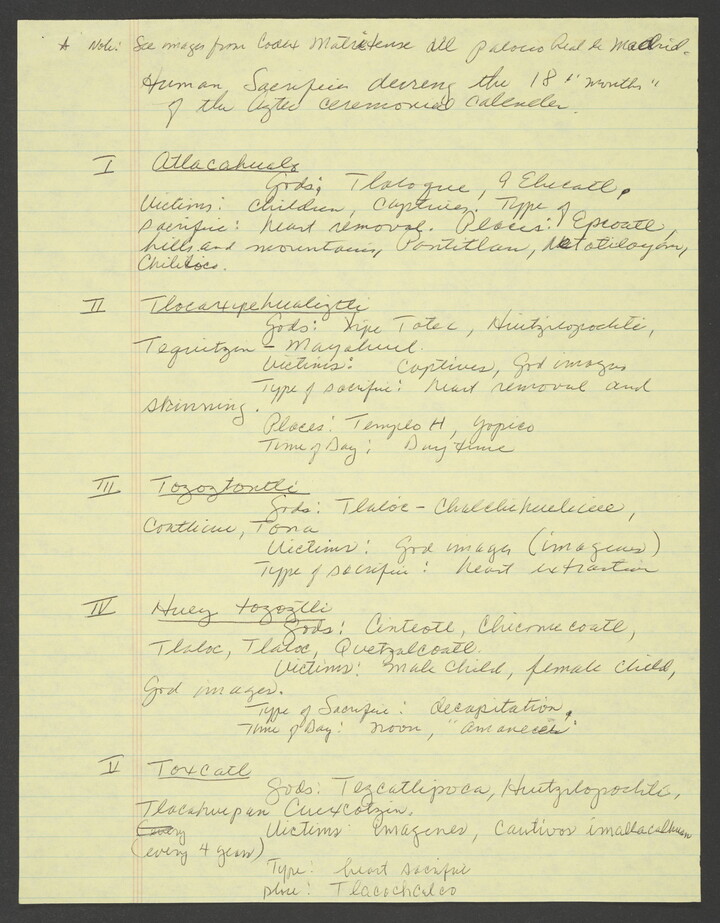 * Note: See images from Codex Matritense del Palacio Real de Madrid.
Human Sacrifices during the 18 "months"
of the Aztec ceremonial calender.
I Atlacahualo
Gods: Tlaloque, 9 Ehecatl,
Victims: children, captives, Type of
sacrifice: heart removal. Places: Epcoatl,
hills and mountains, Pantitlan, Netotiloyan,
Chililico.
II Tlacaxipehualiztli
Gods: Xipe Totec, Huitzilopochtli,
Tequitzin - Mayahuel.
Victims: Captives, God images
Type of sacrifice: heart removal and
skinning.
Places: Templo H, Yopico
Time of Day: Day time
III Tozoztontli
Gods: Tlaloc - Chalchihuelicue,
Coatlicue, Tona
Victims: God images (imagenes)
Type of sacrifice: heart extraction
IV Huey tozoztli
Gods: Cinteotl, Chicomecoatl,
Tlaloc, Tlaloc, Quetzalcoatl.
Victims: male child, female child,
God images.
Type of Sacrifice: decapitation,
Time of Day: noon, "amanecer"
V Toxcatl
Gods: Tezcatlipoca, Huitzilopochtli,
Tlacahuepan Cuexcotzin.
(every Victims: imagenes, cautivos
(every 4 years)
Type: heart sacrifice
place: Tlacochcalco